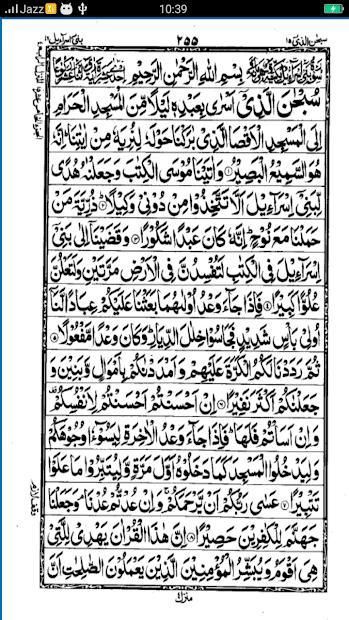 Jazz 10:39
سبحن الذی ۱۵ ۲۵۵ بنی اسرآءیل ۱۷
بِسْمِ اللهِ الرَّحْمٰنِ الرَّحِيْمِ
سُبْحٰنَ الَّذِيْۤ اَسْرٰى بِعَبْدِهٖ لَيْلًا مِّنَ الْمَسْجِدِ الْحَرَامِ
اِلَى الْمَسْجِدِ الْاَقْصَا الَّذِيْ بٰرَكْنَا حَوْلَهٗ لِنُرِيَهٗ مِنْ اٰيٰتِنَا ؕ اِنَّهٗ
هُوَ السَّمِيْعُ الْبَصِيْرُ ① وَاٰتَيْنَا مُوْسَى الْكِتٰبَ وَجَعَلْنٰهُ هُدًى
لِّبَنِيْۤ اِسْرَآءِيْلَ اَلَّا تَتَّخِذُوْا مِنْ دُوْنِيْ وَكِيْلًا ② ذُرِّيَّةَ مَنْ
حَمَلْنَا مَعَ نُوْحٍ ؕ اِنَّهٗ كَانَ عَبْدًا شَكُوْرًا ③ وَقَضَيْنَاۤ اِلٰى بَنِيْۤ
اِسْرَآءِيْلَ فِي الْكِتٰبِ لَتُفْسِدُنَّ فِي الْاَرْضِ مَرَّتَيْنِ وَلَتَعْلُنَّ
عُلُوًّا كَبِيْرًا ④ فَاِذَا جَآءَ وَعْدُ اُوْلٰىهُمَا بَعَثْنَا عَلَيْكُمْ عِبَادًا لَّنَاۤ
اُولِيْ بَاْسٍ شَدِيْدٍ فَجَاسُوْا خِلٰلَ الدِّيَارِ ؕ وَكَانَ وَعْدًا مَّفْعُوْلًا ⑤
ثُمَّ رَدَدْنَا لَكُمُ الْكَرَّةَ عَلَيْهِمْ وَاَمْدَدْنٰكُمْ بِاَمْوَالٍ وَّبَنِيْنَ وَ
جَعَلْنٰكُمْ اَكْثَرَ نَفِيْرًا ⑥ اِنْ اَحْسَنْتُمْ اَحْسَنْتُمْ لِاَنْفُسِكُمْ
وَاِنْ اَسَاْتُمْ فَلَهَا ؕ فَاِذَا جَآءَ وَعْدُ الْاٰخِرَةِ لِيَسُوْٓءٗا وُجُوْهَكُمْ
وَلِيَدْخُلُوا الْمَسْجِدَ كَمَا دَخَلُوْهُ اَوَّلَ مَرَّةٍ وَّلِيُتَبِّرُوْا مَا عَلَوْا
تَتْبِيْرًا ⑦ عَسٰى رَبُّكُمْ اَنْ يَّرْحَمَكُمْ ۚ وَاِنْ عُدْتُّمْ عُدْنَا ۘ وَجَعَلْنَا
جَهَنَّمَ لِلْكٰفِرِيْنَ حَصِيْرًا ⑧ اِنَّ هٰذَا الْقُرْاٰنَ يَهْدِيْ لِلَّتِيْ
هِيَ اَقْوَمُ وَيُبَشِّرُ الْمُؤْمِنِيْنَ الَّذِيْنَ يَعْمَلُوْنَ الصّٰلِحٰتِ اَنَّ
منزل